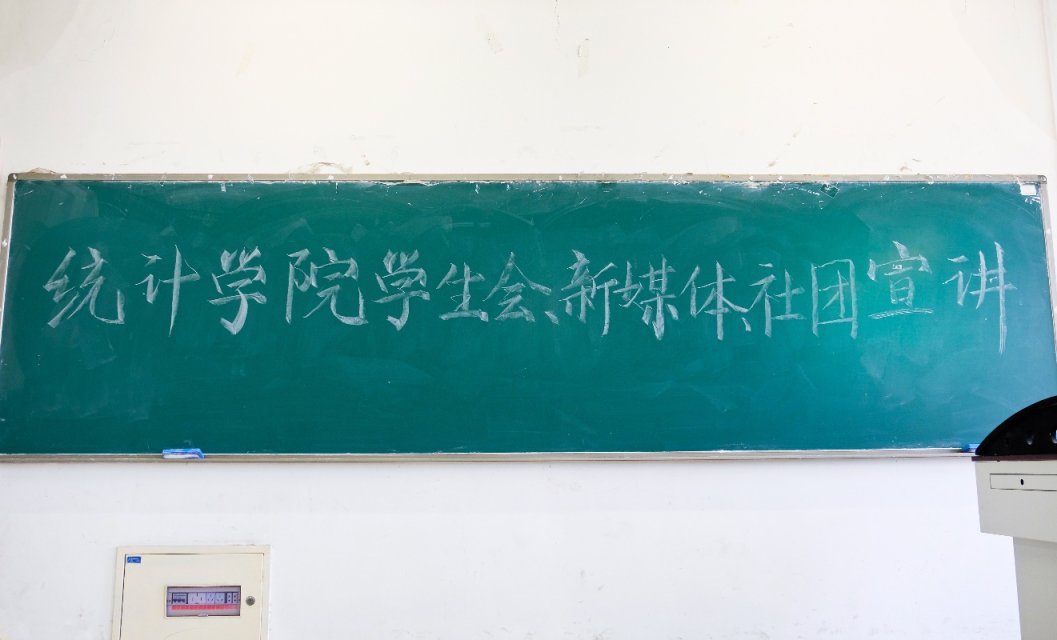 统计学院学生会、新媒体、社团宣讲